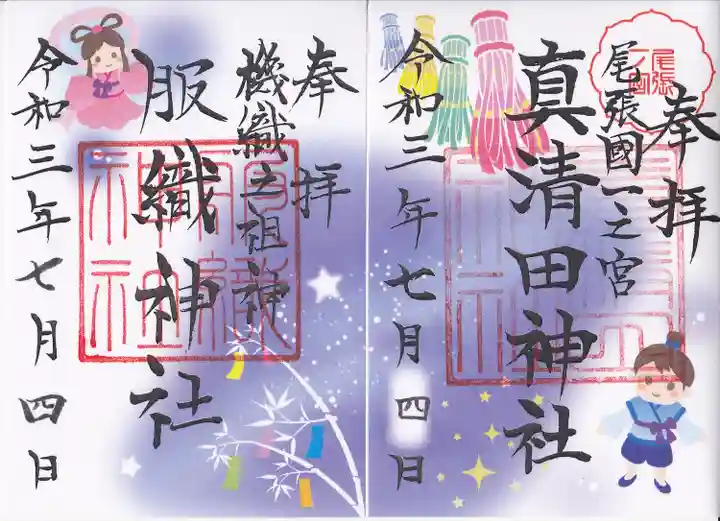 奉拝
尾張國一之宮
真清田神社
令和三年七月四日
奉拝
機織之祖神
服織神社
令和三年七月四日